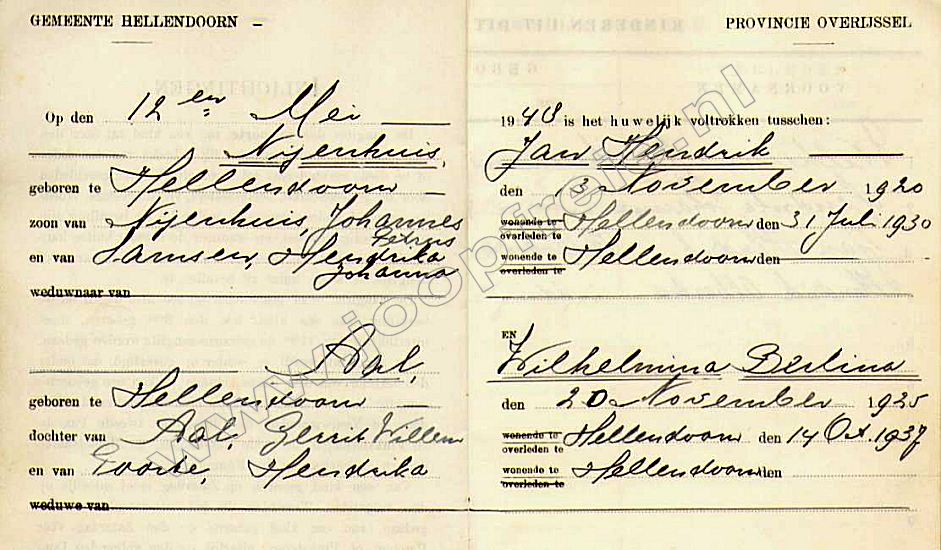 GEMEENTE HELLENDOORN –
PROVINCIE OVERIJSSEL
Op den 12 en Mei
1948 is het huwelijk voltrokken tusschen:
Nijenhuis,
Jan Hendrik
geboren te Hellendoorn
den 13 November 1920
zoon van Nijenhuis, Johannes Petrus
wonende te overleden te Hellendoorn den 31 Juli 1930
en van Jansen, Hendrika Johanna
wonende te overleden te Hellendoorn den
weduwnaar van
EN
Aal,
Wilhelmina Berlina
geboren te Hellendoorn
den 20 November 1925
dochter van Aal, Gerrit Willem
wonende te overleden te Hellendoorn den 14 Oct. 1937
en van Hendrika
wonende te overleden te Hellendoorn den
weduwe van
www.joopfreik.nl